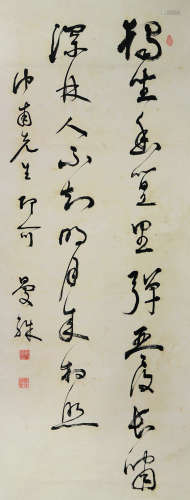 獨坐幽篁里彈琴復長嘯
深林人不知明月來相照
仲甫先生印可 曼殊